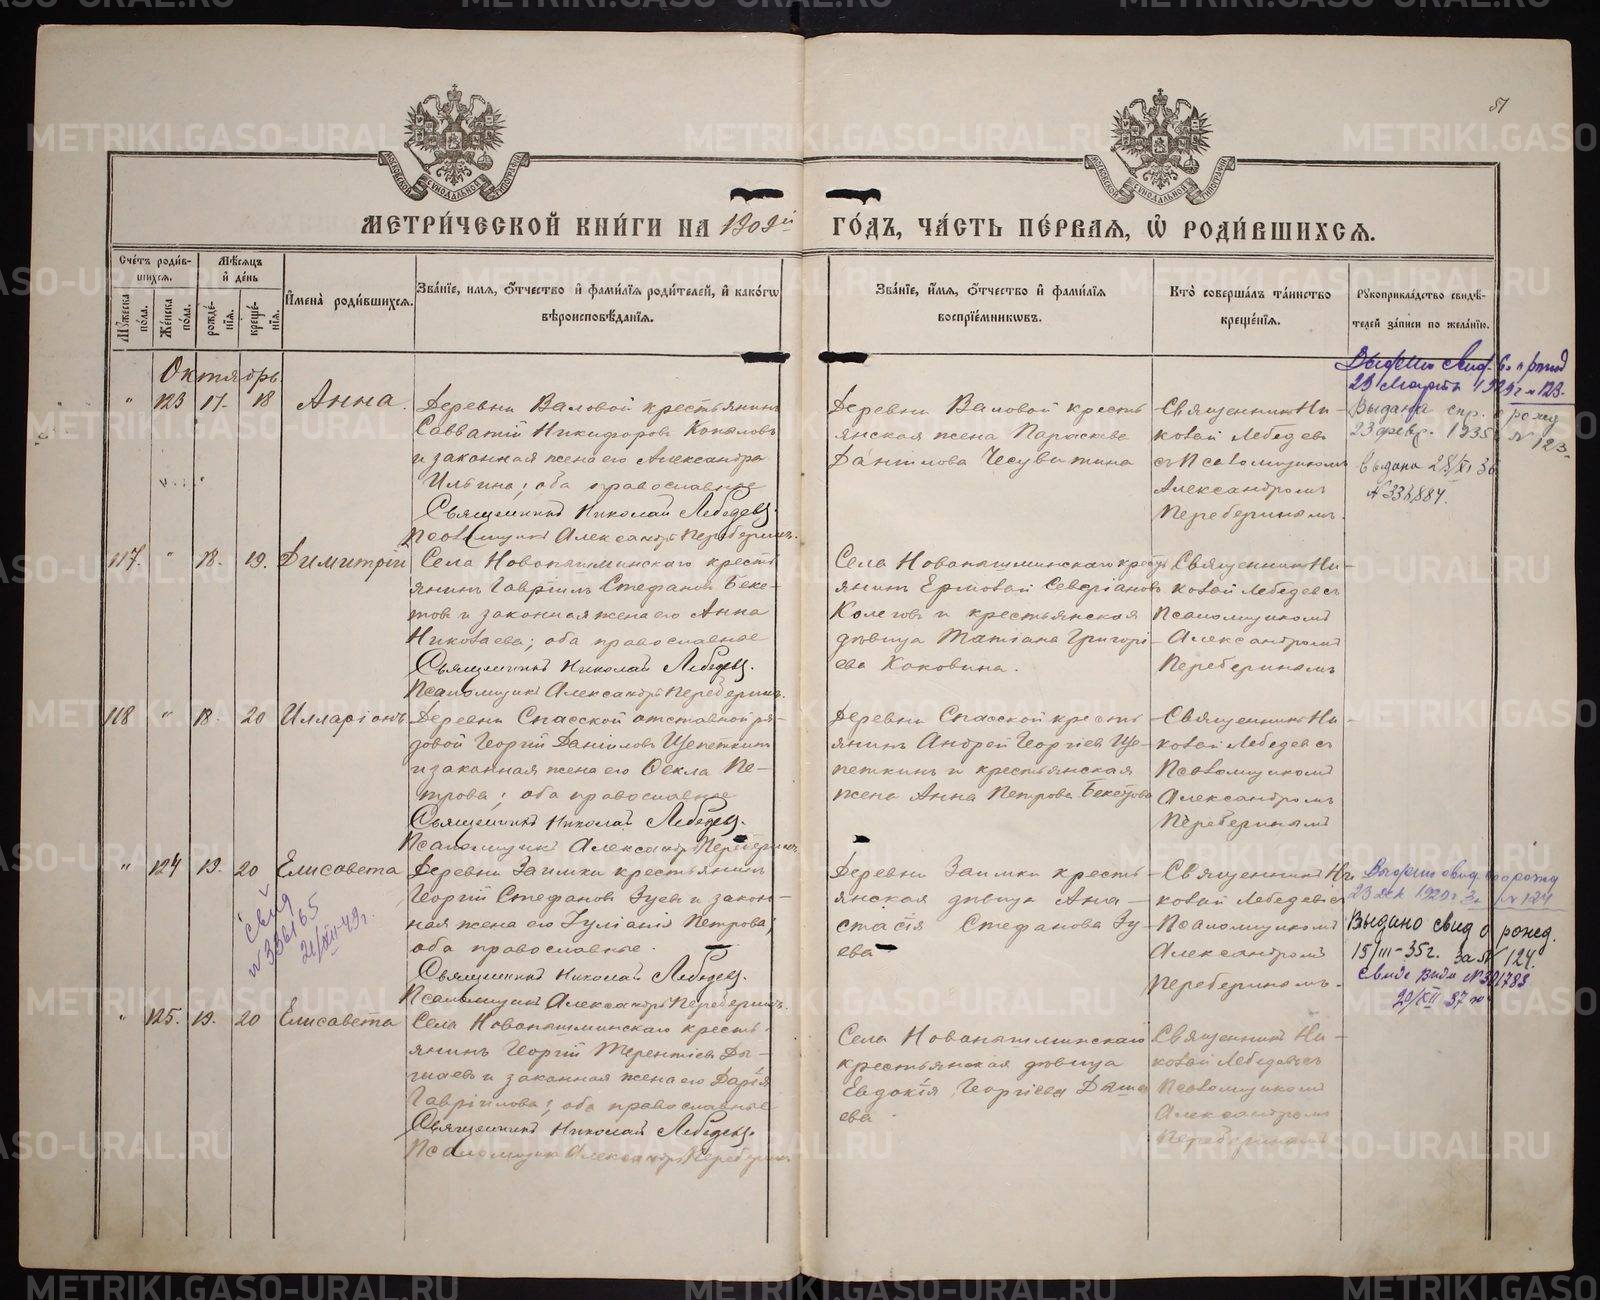 51
МОСКОВСКОЙ СѴНОДАЛЬНОЙ ТИПОГРАФІИ
МОСКОВСКОЙ СѴНОДАЛЬНОЙ ТИПОГРАФІИ
МЕТРИ́ЧЕСКОЙ КНИ́ГИ НА 1909й ГО́ДЪ, ЧА́СТЬ ПЕ́РВАЯ, Ѡ҆ РОДИ́ВШИХСЯ.
Сче́тъ роди́в-
шихся.
Мѣ́сяцъ
и҆ де́нь
Му́жеска
по́ла.
Же́нска
по́ла.
рожде́-
нїя.
креще́-
нїя.
И҆мена̀ роди́вшихся.
Зва́нїе, и҆мя, ѻ҆́тчество и҆ фами́лїя роди́телей, и҆ како́гѡ
вѣроисповѣ́данїя.
Зва́нїе, и҆́мя, ѻ҆́тчество и҆ фами́лїя
воспрїе́мникѡвъ.
Кто̀ соверша́лъ та́инство
креще́нїя.
Рꙋкоприкла́дство свидѣ́-
телей за́писи по жела́нїю.
Октябрь.
" 123 17. 18 Анна.
Деревни Валовой крестьянинъ
Савватій Никифоровъ Копаловъ
и законная жена его Александра
Ильина; оба православные
Священникъ Николай Лебедевъ.
Псаломщикъ Александръ Переберинъ.
Деревни Валовой кресть
янская жена Параскева
Даніилова Чесуватина
Священник Ни-
колай Лебедевъ
съ Псаломщикомъ
Александромъ
Переберинымъ.
23 Марта 1929 г № 123.
Выдана спр. о рожд
23 февр. 1935 г № 123.
выдана 28/XI 36
117. " 18. 19. Димитрій
Села Новопышминскаго кресть
янинъ Гавріилъ Стефановъ Беке-
товъ и законная жена его Анна
Николаева; оба православные
Священникъ Николай Лебедевъ.
Псаломщикъ Александръ Переберинъ.
Села Новопышминскаго кресть
янинъ Ермолай Севѣріановъ
Колеговъ и крестьянская
дѣвица Татіана Григорі-
ева Коковина.
Священник Ни-
колай Лебедевъ съ
Псаломщикомъ
Александромъ
Переберинымъ
118 " 18. 20 Илларіонъ
Деревни Спасской отставной ря-
довой Георгій Даніиловъ Щепеткинъ
и законная жена его Ѳекла Пе-
трова; оба православные
Священникъ Николай Лебедевъ.
Псаломщикъ Александръ Переберинъ
Деревни Спасской кресть
янинъ Андрей Георгіевъ Ще-
петкинъ и крестьянская
жена Анна Петрова Бекетова
Священник Ни-
колай Лебедевъ съ
Псаломщикомъ
Александромъ
Переберинымъ
" 124 19. 20 Елисавета
Деревни Заимки крестьянинъ
Георгій Стефановъ Зуевъ и закон-
ная жена его Іуліанія Петрова;
оба православные.
Священникъ Николай Лебедевъ.
Псаломщикъ Александръ Переберинъ.
Деревни Заимки кресть-
янская дѣвица Ана-
стасія Стефанова Зу-
ева
Священник Ни-
колай Лебедевъ съ
Псаломщикомъ
Александромъ
Переберинымъ.
№ 124
Выдано свид о рожд.
15/III-35г. за № 124.
20/XII 37
свид
№ 336165
21/XII-49г.
" 125. 19. 20 Елисавета
Села Новопышминскаго кресть-
янинъ Георгій Терентіевъ Ды-
шаевъ и законная жена его Дарія
Гавріилова; оба православные
Священникъ Николай Лебедевъ.
Псаломщикъ Александръ Переберинъ
Села Новопышминскаго
крестьянская дѣвица
Евдокія Георгіева Дыша
ева
Священник Ни-
колай Лебедевъ съ
Псаломщикомъ
Александромъ
Переберинымъ
METRIKI.GASO-URAL.RU